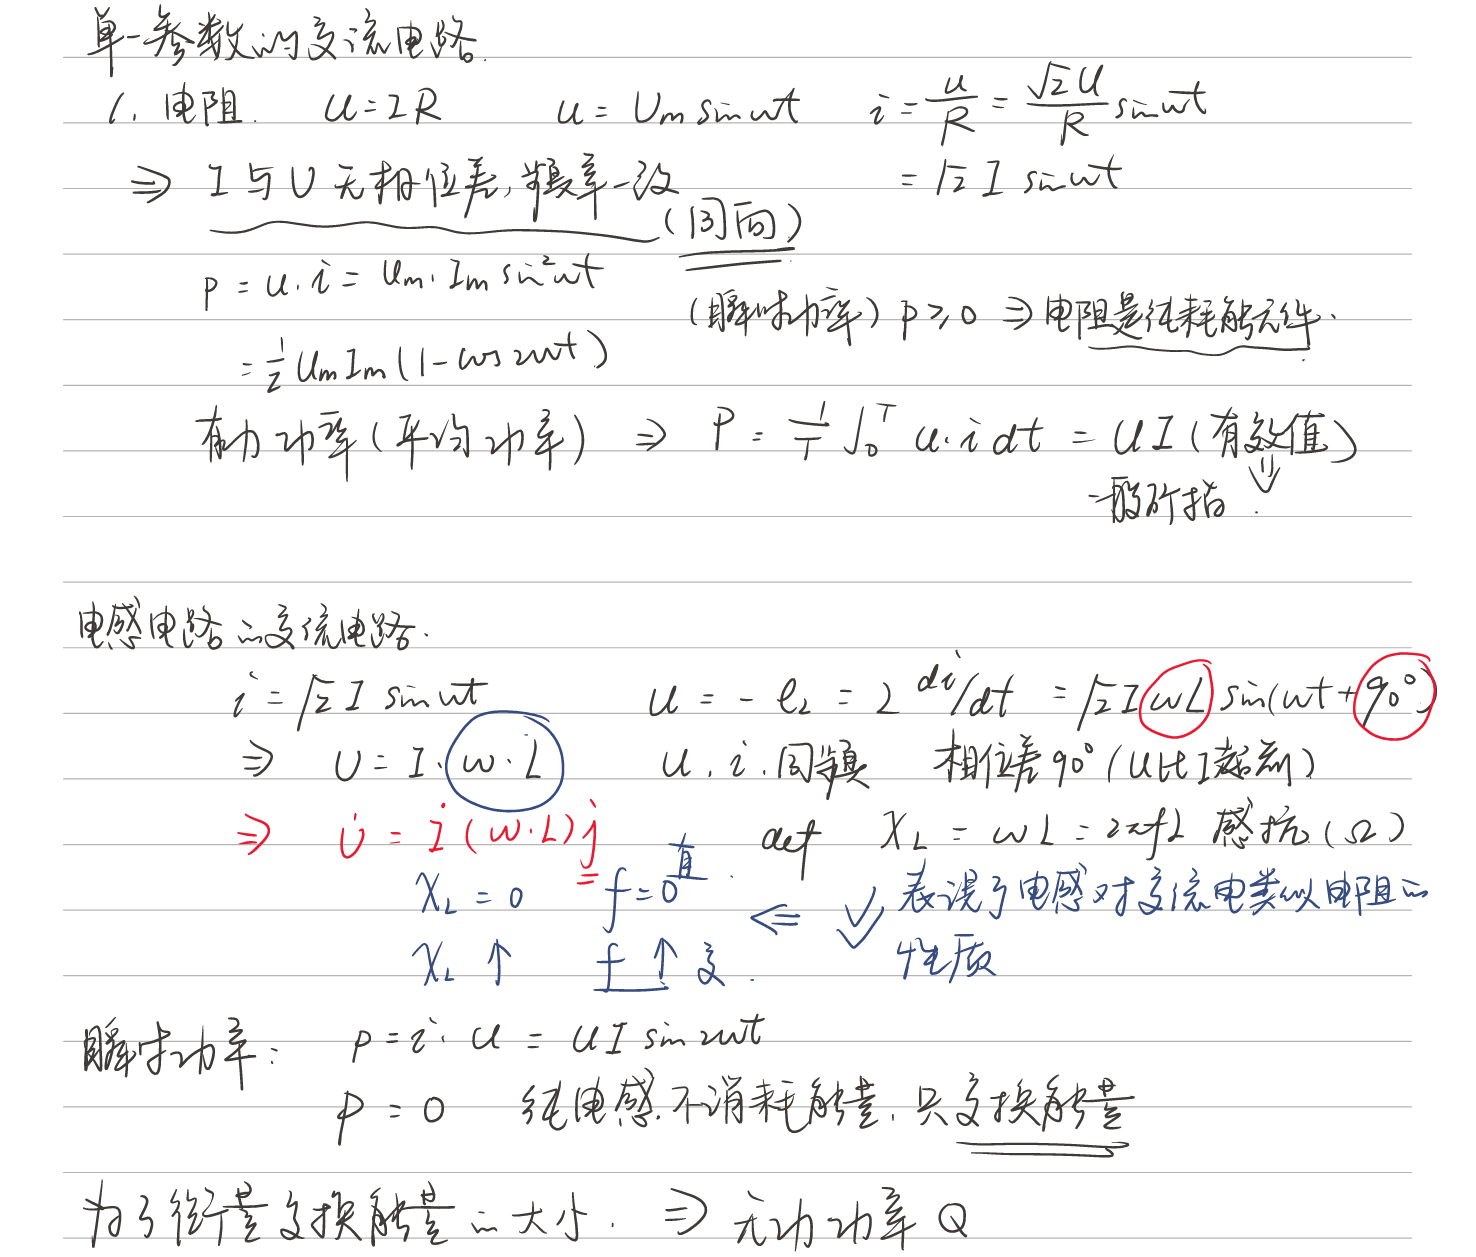 单一参数的交流电路.
1. 电阻. U=IR u= Um sinωt i=u/R=√2U/R sinωt
⇒ I与U无相位差,频率一致 =√2 I sinωt
(同向)
p=u.i=Um.Im sin²ωt
(瞬时功率) p≥0 ⇒电阻是纯耗能元件.
=1/2 UmIm(1-cos2ωt)
有功功率(平均功率) ⇒ P=1/T ∫₀ᵀ u.i dt = UI(有效值)
⇓
一般所指.
电感电路的交流电路.
i=√2 I sinωt u=-eL=L di/dt =√2I ωL sin(ωt+90°)
⇒ U=I.ω.L u.i.同频 相位差90°(U比I超前)
⇒ U̇=İ(ω.L)j def XL=ωL=2πfL 感抗(Ω)
XL=0 f=0 直. ⇐ 表现了电感对交流电类似电阻的
XL↑ f↑交. 性质
瞬时功率: p=i.u=UI sin2ωt
P=0 纯电感.不消耗能量.只交换能量
为了衡量交换能量的大小. ⇒无功功率Q